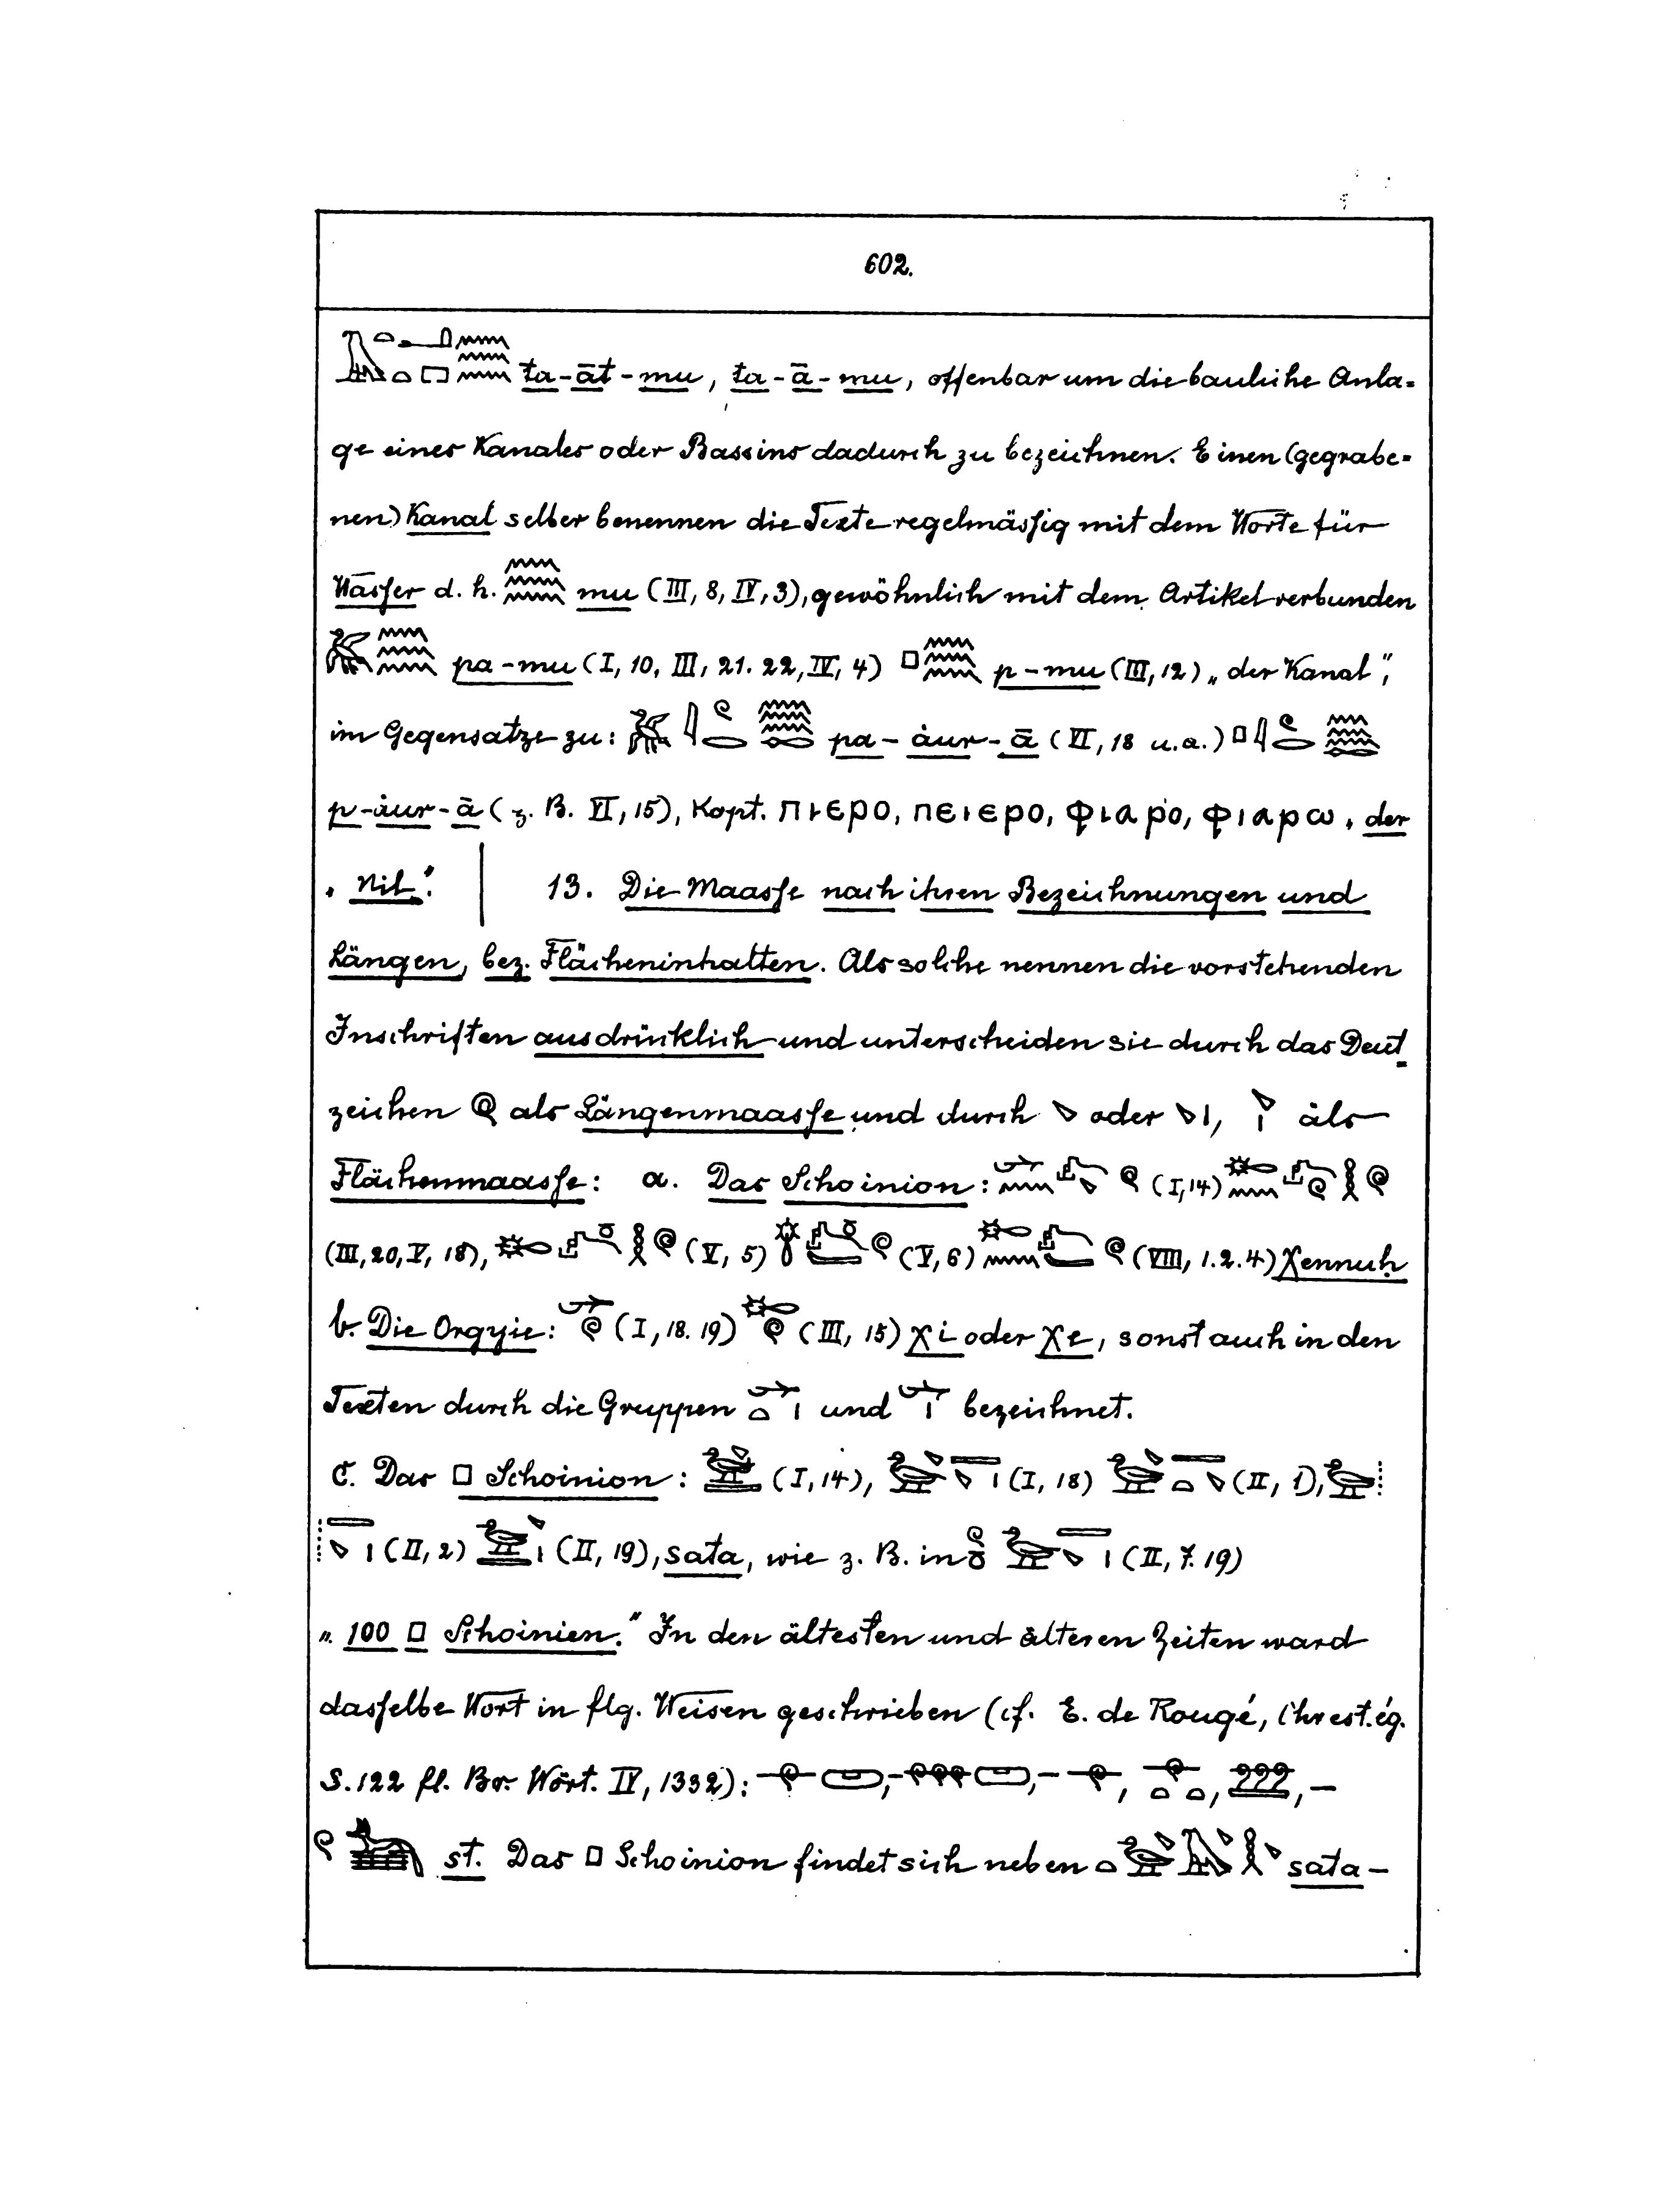 602.
ta-āt-mu, ta-ā-mu, offenbar um die bauliche Anla=
ge eines Kanales oder Bassins dadurch zu bezeichnen. Einen (gegrabe=
nen) Kanal selber benennen die Texte regelmässig mit dem Worte für
Wasser d. h. mu (III, 8, IV, 3), gewöhnlich mit dem Artikel verbunden
pa-mu (I, 10, III, 21. 22, IV, 4) p-mu (III, 12) „der Kanal“,
im Gegensatze zu: pa-ȧur-ā (VI, 18 u.a.)
p-ȧur-ā (z. B. VI, 15), Kopt. ⲡⲓⲉⲣⲟ, ⲡⲉⲓⲉⲣⲟ, ⲫⲓⲁⲣⲟ, ⲫⲓⲁⲣⲱ, der
„Nil“. 13. Die Maasse nach ihren Bezeichnungen und
Längen, bez. Flächeninhalten. Als solche nennen die vorstehenden
Inschriften ausdrücklich und unterscheiden sie durch das Deut
zeichen als Längenmaasse und durch oder , als
Flächenmaasse: a. Das Schoinion: (I, 14)
(III, 20, V, 18), (V, 5) (V, 6) (VIII, 1. 2. 4) χennuḥ
b. Die Orgyie: (I, 18. 19) (III, 15) χi oder χe, sonst auch in den
Texten durch die Gruppen und bezeichnet.
C. Das □ Schoinion: (I, 14), (I, 18) (II, 1),
(II, 2) (II, 19), sata, wie z. B. in (II, 7. 19)
„100 □ Schoinien.“ In den ältesten und älteren Zeiten ward
dasselbe Wort in flg. Weisen geschrieben (cf. E. de Rougé, Chrest. ég.
S. 122 fl. Br. Wört. IV, 1332):
st. Das □ Schoinion findet sich neben sata-